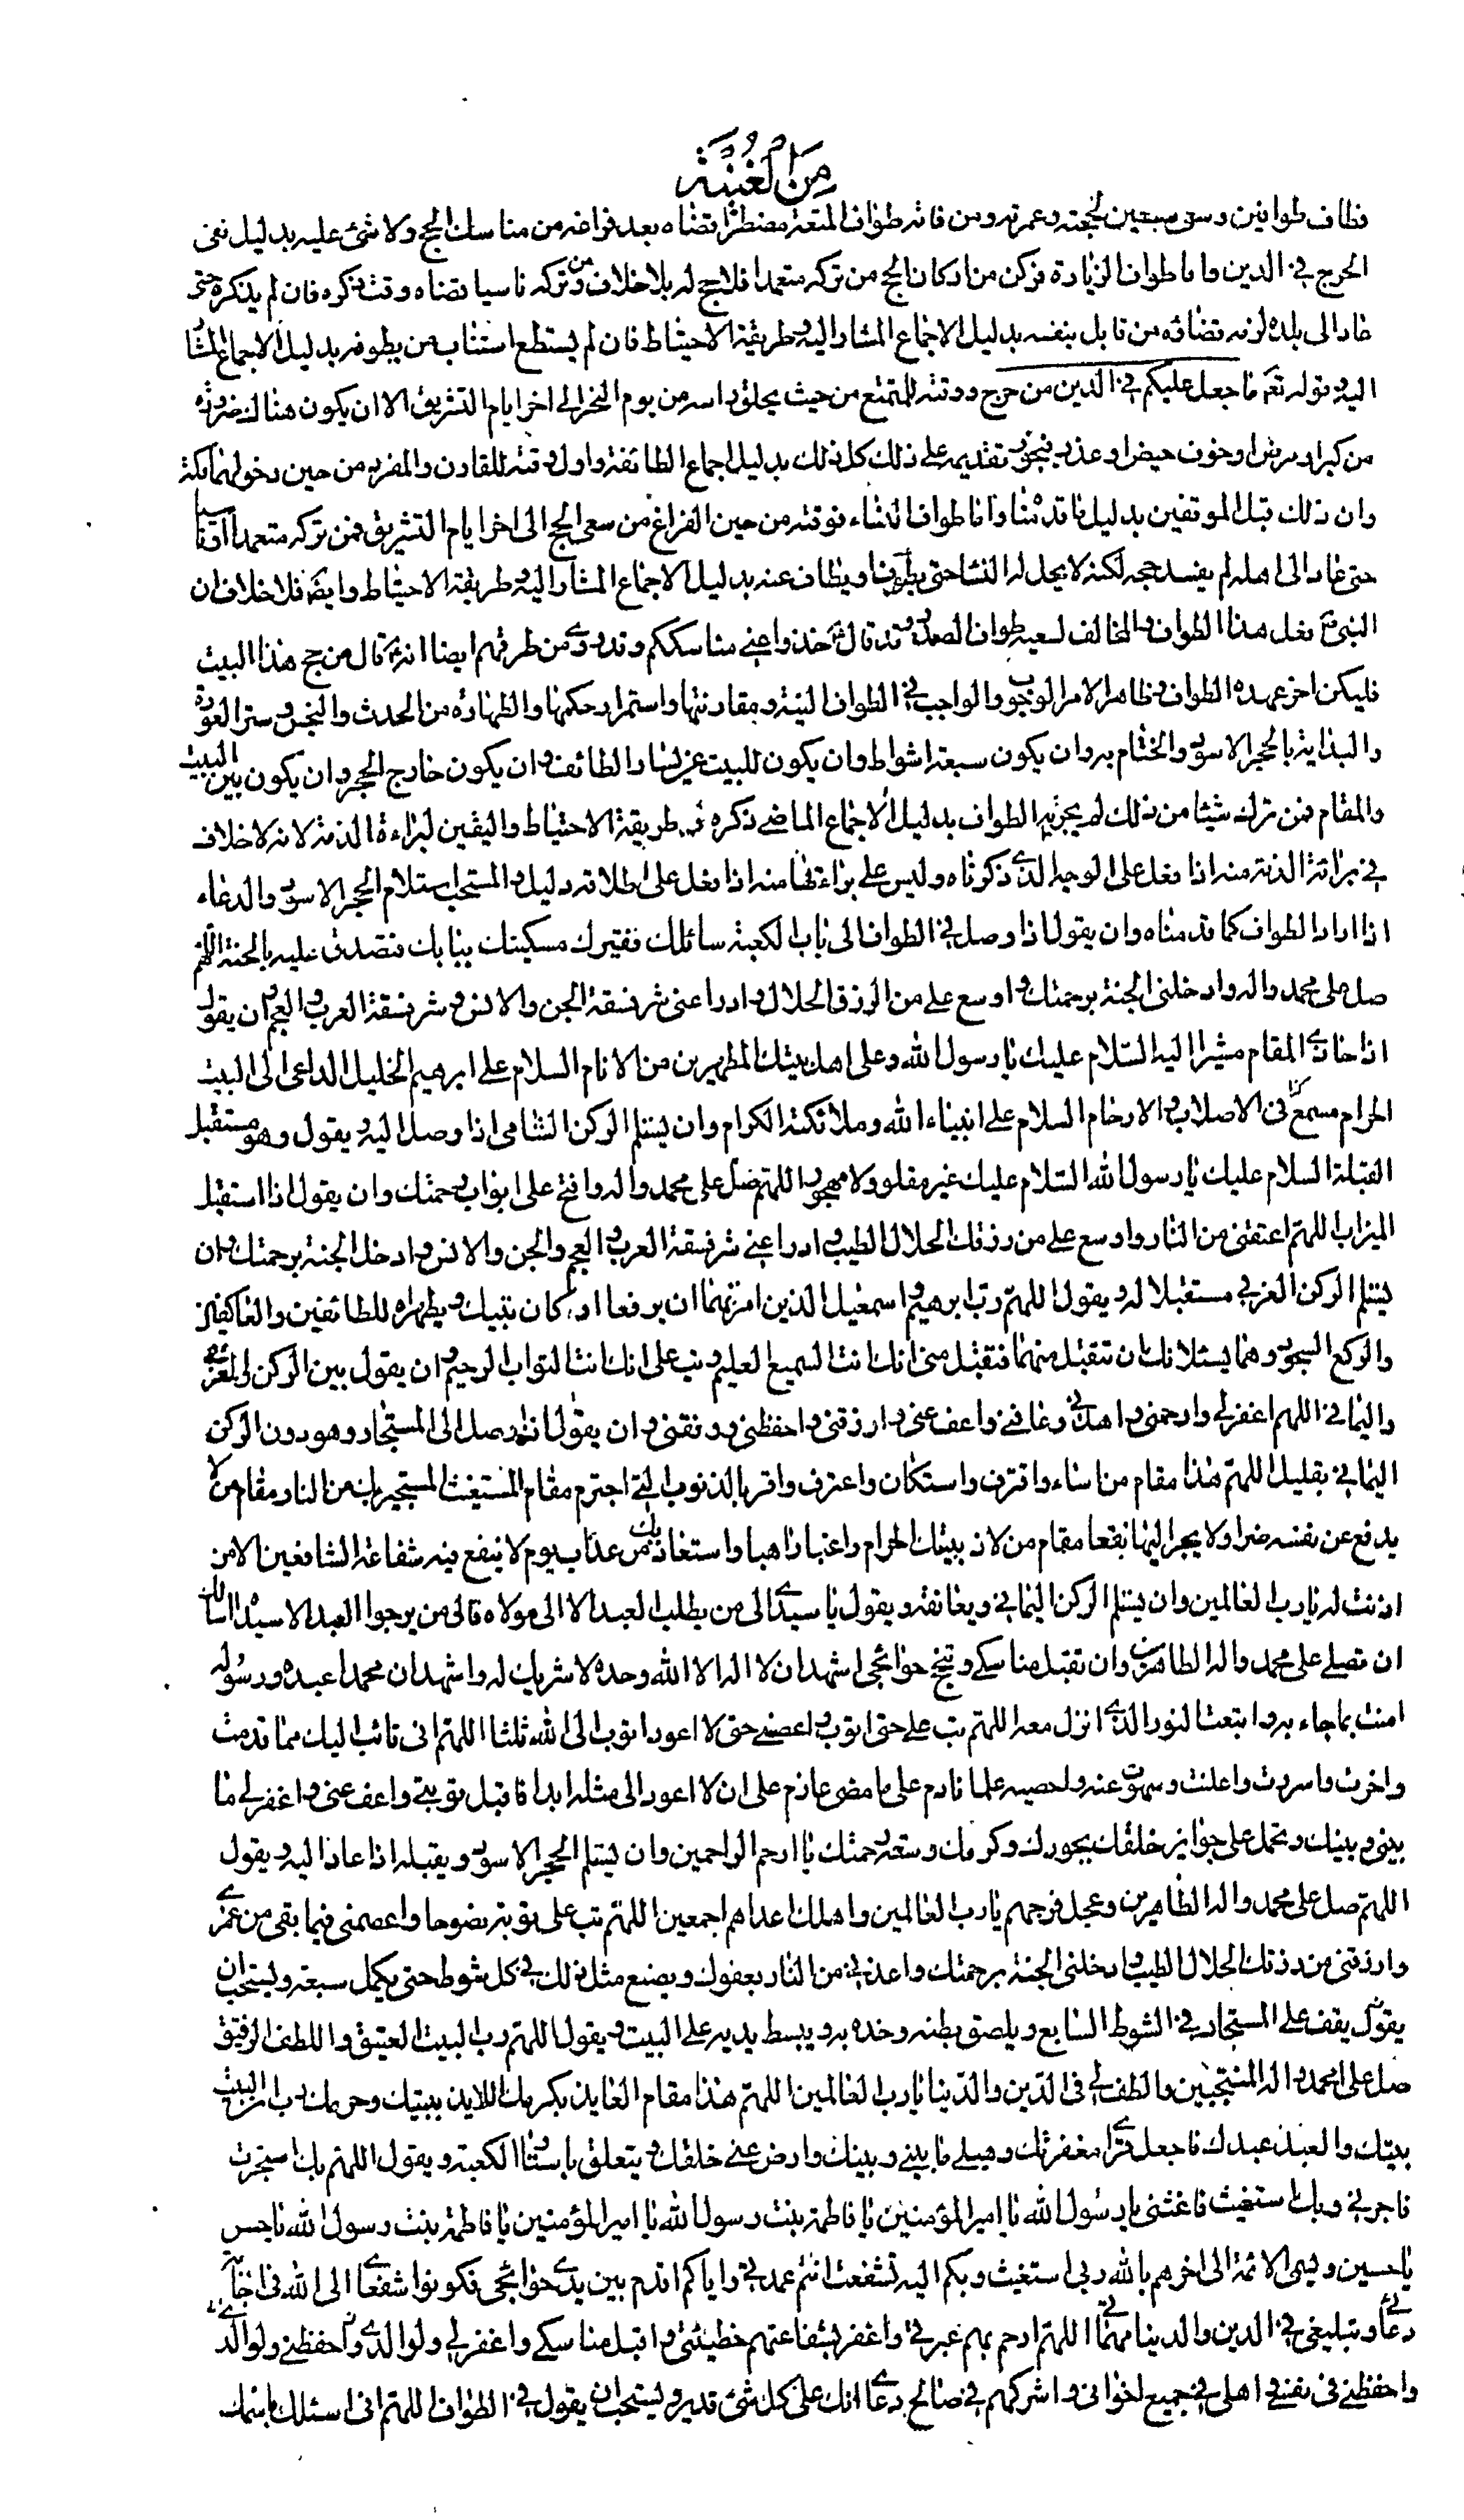 من الغنية
فطاف طوافين وسعى سعيين لحجته وعمرته ومن فاته طواف المتعة مضطرا قضاه بعد فراغه من مناسك الحج ولا شئ عليه بدليل نفى
الحرج فى الدين واما طواف الزيارة فركن من اركان الحج من تركه متعمدا فلا حج له بلا خلاف ومن تركه ناسيا قضاه وقت ذكره فان لم يذكره حتى
عاد الى بلده لزمه قضاؤه من قابل بنفسه بدليل الاجماع المشار اليه وطريقة الاحتياط فان لم يستطع استناب من يطوفه بدليل الاجماع المشار
اليه وقوله تعم ما جعل عليكم فى الدين من حرج ووقته للمتمتع من حيث يحلق راسه من يوم النحر الى اخر ايام التشريق الا ان يكون هناك ضرورة
من كبر او مرض او خوف حيض او عذر فيجوز تقديمه على ذلك كل ذلك بدليل اجماع الطائفة واول وقته للقارن والمفرد من حين دخولهما مكة
وان ذلك قبل الموقفين بدليل ما قدمناه واما طواف النساء فوقته من حين الفراغ من سعى الحج الى اخر ايام التشريق فمن تركه متعمدا او ناسيا
حتى عاد الى اهله لم يفسد حجه لكنه لا يحل له النسا حتى يطوف او يطاف عنه بدليل الاجماع المشار اليه وطريقة الاحتياط وايضا فلا خلاف ان
النبى ص فعل هذا الطواف والمخالف لسعيه طواف الصدر وقد قال ص خذوا عنى مناسككم وقد روى من طرقهم ايضا انه ص قال من حج هذا البيت
فليكن اخر عهده الطواف وظاهر الامر الوجوب والواجب فى الطواف النية ومقارنتها واستمرار حكمها والطهارة من الحدث والنجس وستر العورة
والبداية بالحجر الاسود والختام به وان يكون سبعة اشواط وان يكون للبيت عن يسار الطائف وان يكون خارج الحجر وان يكون بين البيت
والمقام فمن ترك شيئا من ذلك لم يجزيه الطواف بدليل الاجماع الماضى ذكره وطريقة الاحتياط واليقين لبراءة الذمة لانه لا خلاف
فى براءة الذمة منه اذا فعل على الوجه الذى ذكرناه وليس على براءتها منه اذا فعل على اطلاقه دليل والمستحب استلام الحجر الاسود والدعاء
اذا اراد الطواف كما قدمناه وان يقول اذا وصل فى الطواف الى باب الكعبة سائلك فقيرك مسكينك ببابك فتصدق عليه بالجنة اللهم
صل على محمد واله وادخلنى الجنة برحمتك واوسع على من الرزق الحلال وادرا عنى شر فسقة الجن والانس وشر فسقة العرب والعجم وان يقول
اذا حاذى المقام مشيرا اليه السلام عليك يا رسول الله وعلى اهل بيتك المطهرين من الانام السلام على ابرهيم الخليل الداعى الى البيت
الحرام مسمع من فى الاصلاب والارحام السلام على انبياء الله وملائكته الكرام وان يستلم الركن الشامى اذا وصل اليه ويقول وهو مستقبل
القبلة السلام عليك يا رسول الله السلام عليك غير مقلو ولا مهجور اللهم صل على محمد واله وافتح على ابواب رحمتك وان يقول اذا استقبل
الميزاب اللهم اعتقنى من النار واوسع على من رزقك الحلال الطيب وادرا عنى شر فسقة العرب والعجم والجن والانس وادخل الجنة برحمتك وان
يستلم الركن الغربى مستقبلا له ويقول اللهم رب ابرهيم واسمعيل الذين امرتهما ان يرفعا اركان بيتك ويطهراه للطائفين والعاكفين
والركع السجود وهما يسئلانك ان تتقبل منهما فتقبل منى انك انت السميع العليم وتب على انك انت التواب الرحيم وان يقول بين الركن الغربى
واليمانى اللهم اغفر لى وارحمنى واهدنى وعافنى واعف عنى وارزقنى واحفظنى ووفقنى وان يقول اذا وصل الى المستجار وهو دون الركن
اليمانى بقليل اللهم هذا مقام من اساء واقترف واستكان واعترف واقر بالذنوب التى اجترم مقام المستغيث المستجير بك من النار مقام من لا
يدفع عن نفسه ضرا ولا يجر اليها نفعا مقام من لاذ ببيتك الحرام راغبا راهبا واستعاذ بك من عذاب يوم لا ينفع فيه شفاعة الشافعين الا من
اذنت له يا رب العالمين وان يستلم الركن اليمانى ويعانقه ويقول يا سيدى الى من يطلب العبد الا الى مولاه فالى من يرجوا العبد الا سيده اسالك
ان تصلى على محمد واله الطاهرين وان تقبل مناسكى وتنجح حوائجى اشهد ان لا اله الا الله وحده لا شريك له واشهد ان محمدا عبده ورسوله
امنت بما جاء به واتبعت النور الذى انزل معه اللهم تب على حتى اتوب واعصمنى حتى لا اعود اتوب الى الله ثلثا اللهم انى تائب اليك مما قدمت
واخرت واسررت واعلنت وسهوت عنه ولحصيه علما نادم على ما مضى عازم على ان لا اعود الى مثله ابدا فاقبل توبتى واعف عنى واغفر لى ما
بينى وبينك وتحمل على جوائز خلقك بجودك وكرمك وسعة رحمتك يا ارحم الراحمين وان يستلم الحجر الاسود ويقبله اذا عاد اليه ويقول
اللهم صل على محمد واله الطاهرين وعجل فرجهم يا رب العالمين واهلك اعداهم اجمعين اللهم تب على توبة نصوحا واعصمنى فيما بقى من عمرى
وارزقنى من رزقك الحلال الطيب وادخلنى الجنة برحمتك واعذنى من النار بعفوك ويصنع مثل ذلك فى كل شوط حتى يكمل سبعة ويستحب ان
يقف على المستجار فى الشوط السابع ويلصق بطنه وخده به ويبسط يديه على البيت ويقول اللهم رب البيت العتيق واللطف الرفيق
صل على محمد واله المنتجبين والطف لى فى الدين والدنيا يا رب العالمين اللهم هذا مقام العايذ بكرمك اللايذ ببيتك وحرمك رب ان البيت
بيتك والعبد عبدك فاجعل قراى مغفرتك وهب لى ما بينى وبينك وارض عنى خلقك ويتعلق باستار الكعبة ويقول اللهم بك استجرت
فاجرنى وبك استغيث فاغثنى يا رسول الله يا امير المؤمنين يا فاطمة بنت رسول الله يا امير المؤمنين يا فاطمة بنت رسول الله يا حسن
يا حسين ويسمى الائمة الى اخرهم بالله ربى استغيث وبكم اليه تشفعت انتم عمدتى واياكم اقدم بين يدى حوائجى فكونوا شفعاى الى الله فى اجابة
دعاى وتبليغى فى الدين والدنيا اللهم ارحم بهم عبرتى واغفر بشفاعتهم خطيئتى واقبل مناسكى واغفر لى ولوالدى واحفظنى ولوالدى
واحفظنى فى نفسى واهلى فى جميع اخوانى واشركهم فى صالح دعاى انك على كل شئ قدير ويستحب ان يقول فى الطواف اللهم انى اسئلك باسمك